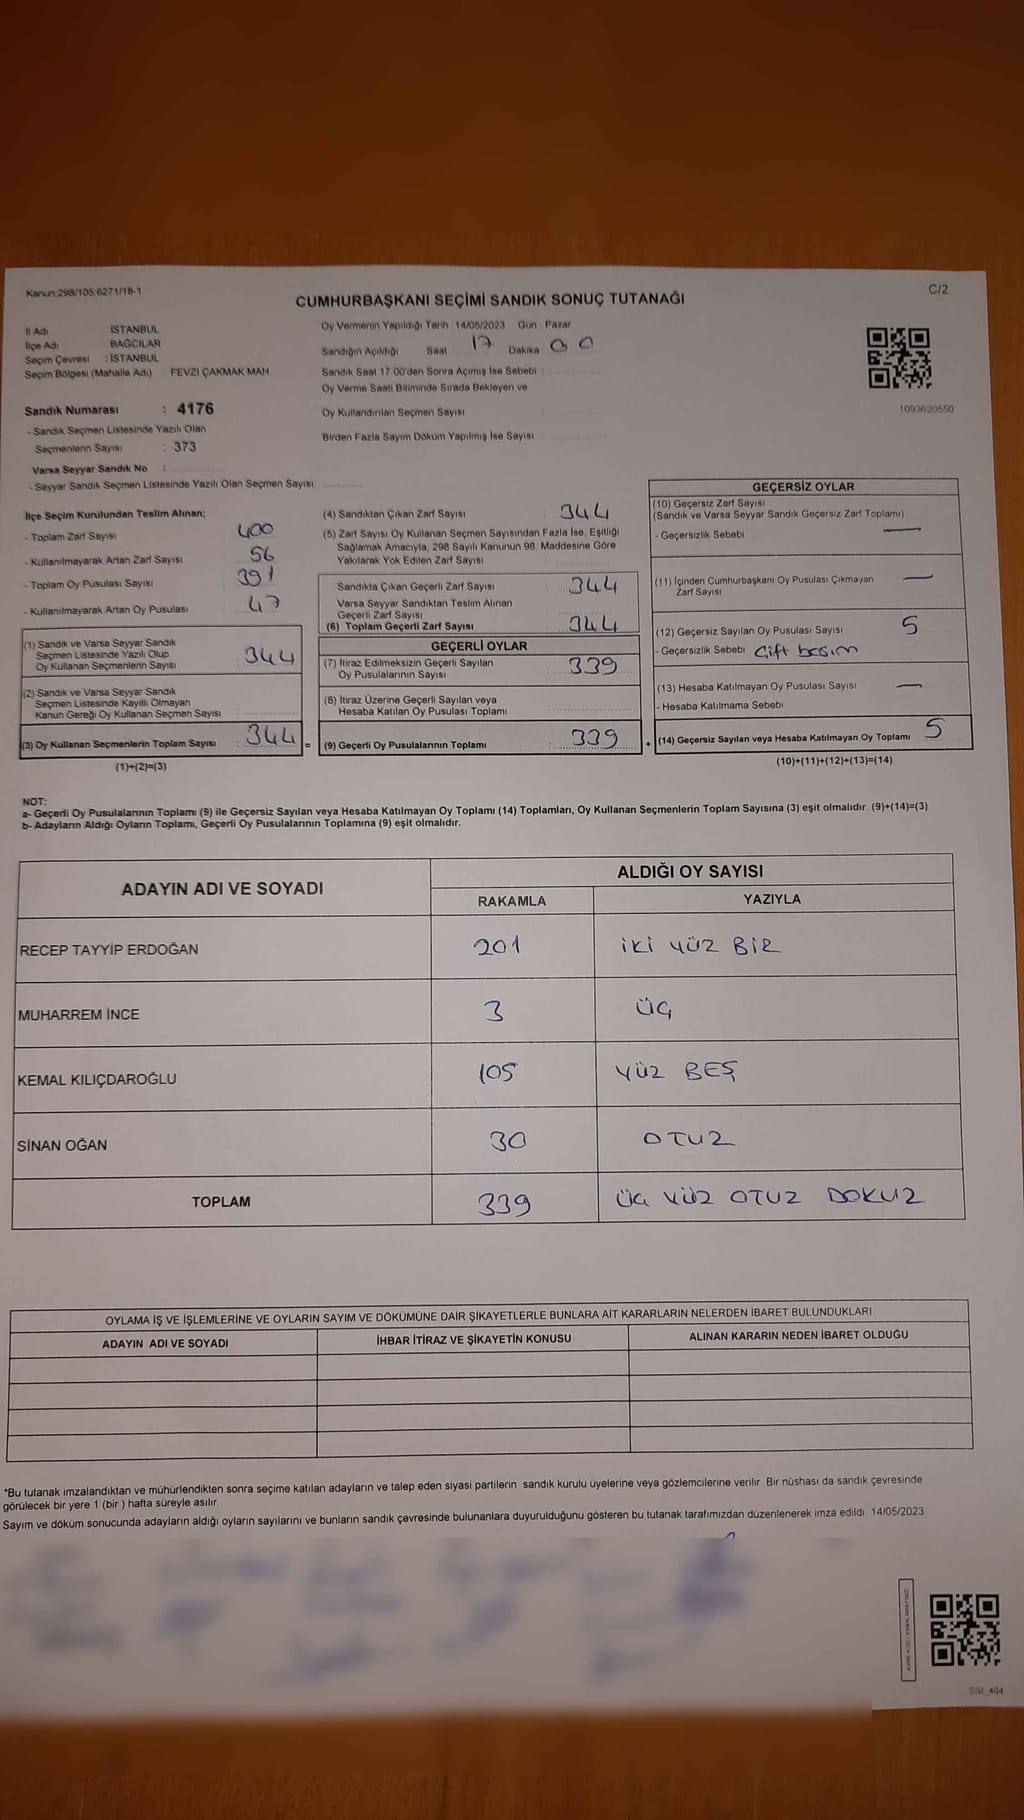 Kanun:298/105;6271/18-1
C/2
CUMHURBAŞKANI SEÇİMİ SANDIK SONUÇ TUTANAĞI
İl Adı : İSTANBUL
İlçe Adı : BAĞCILAR
Seçim Çevresi : İSTANBUL
Seçim Bölgesi (Mahalle Adı) : FEVZİ ÇAKMAK MAH.
Sandık Numarası : 4176
- Sandık Seçmen Listesinde Yazılı Olan
Seçmenlerin Sayısı : 373
Varsa Seyyar Sandık No :
- Seyyar Sandık Seçmen Listesinde Yazılı Olan Seçmen Sayısı:
Oy Vermenin Yapıldığı Tarih : 14/05/2023 Gün : Pazar
Sandığın Açıldığı Saat 17 Dakika 00
Sandık Saat 17.00'den Sonra Açımış İse Sebebi :
Oy Verme Saati Bitiminde Sırada Bekleyen ve
Oy Kullandırılan Seçmen Sayısı :
Birden Fazla Sayım Döküm Yapılmış İse Sayısı :
1093620550
İlçe Seçim Kurulundan Teslim Alınan;
- Toplam Zarf Sayısı : 400
- Kullanılmayarak Artan Zarf Sayısı : 56
- Toplam Oy Pusulası Sayısı : 391
- Kullanılmayarak Artan Oy Pusulası : 47
(1) Sandık ve Varsa Seyyar Sandık
Seçmen Listesinde Yazılı Olup
Oy Kullanan Seçmenlerin Sayısı : 344
(2) Sandık ve Varsa Seyyar Sandık
Seçmen Listesinde Kayıtlı Olmayan
Kanun Gereği Oy Kullanan Seçmen Sayısı :
(3) Oy Kullanan Seçmenlerin Toplam Sayısı : 344 =
(1)+(2)=(3)
(4) Sandıktan Çıkan Zarf Sayısı : 344
(5) Zarf Sayısı Oy Kullanan Seçmen Sayısından Fazla İse, Eşitliği
Sağlamak Amacıyla, 298 Sayılı Kanunun 98. Maddesine Göre
Yakılarak Yok Edilen Zarf Sayısı :
Sandıkta Çıkan Geçerli Zarf Sayısı : 344
Varsa Seyyar Sandıktan Teslim Alınan
Geçerli Zarf Sayısı :
(6) Toplam Geçerli Zarf Sayısı : 344
GEÇERLİ OYLAR
(7) İtiraz Edilmeksizin Geçerli Sayılan
Oy Pusulalarının Sayısı : 339
(8) İtiraz Üzerine Geçerli Sayılan veya
Hesaba Katılan Oy Pusulası Toplamı :
(9) Geçerli Oy Pusulalarının Toplamı : 339 +
GEÇERSİZ OYLAR
(10) Geçersiz Zarf Sayısı
(Sandık ve Varsa Seyyar Sandık Geçersiz Zarf Toplamı)
- Geçersizlik Sebebi : —
(11) İçinden Cumhurbaşkanı Oy Pusulası Çıkmayan
Zarf Sayısı —
(12) Geçersiz Sayılan Oy Pusulası Sayısı 5
- Geçersizlik Sebebi Çift basım
(13) Hesaba Katılmayan Oy Pusulası Sayısı —
- Hesaba Katılmama Sebebi
(14) Geçersiz Sayılan veya Hesaba Katılmayan Oy Toplamı 5
(10)+(11)+(12)+(13)=(14)
NOT:
a- Geçerli Oy Pusulalarının Toplamı (9) ile Geçersiz Sayılan veya Hesaba Katılmayan Oy Toplamı (14) Toplamları, Oy Kullanan Seçmenlerin Toplam Sayısına (3) eşit olmalıdır. (9)+(14)=(3)
b- Adayların Aldığı Oyların Toplamı, Geçerli Oy Pusulalarının Toplamına (9) eşit olmalıdır.
ADAYIN ADI VE SOYADI
ALDIĞI OY SAYISI
RAKAMLA YAZIYLA
RECEP TAYYİP ERDOĞAN 201 İKİ YÜZ BİR
MUHARREM İNCE 3 ÜÇ
KEMAL KILIÇDAROĞLU 105 YÜZ BEŞ
SİNAN OĞAN 30 OTUZ
TOPLAM 339 ÜÇ YÜZ OTUZ DOKUZ
OYLAMA İŞ VE İŞLEMLERİNE VE OYLARIN SAYIM VE DÖKÜMÜNE DAİR ŞİKAYETLERLE BUNLARA AİT KARARLARIN NELERDEN İBARET BULUNDUKLARI
ADAYIN ADI VE SOYADI İHBAR İTİRAZ VE ŞİKAYETİN KONUSU ALINAN KARARIN NEDEN İBARET OLDUĞU
*Bu tutanak imzalandıktan ve mühürlendikten sonra seçime katılan adayların ve talep eden siyasi partilerin sandık kurulu üyelerine veya gözlemcilerine verilir. Bir nüshası da sandık çevresinde
görülecek bir yere 1 (bir ) hafta süreyle asılır.
Sayım ve döküm sonucunda adayların aldığı oyların sayılarını ve bunların sandık çevresinde bulunanlara duyurulduğunu gösteren bu tutanak tarafımızdan düzenlenerek imza edildi. 14/05/2023